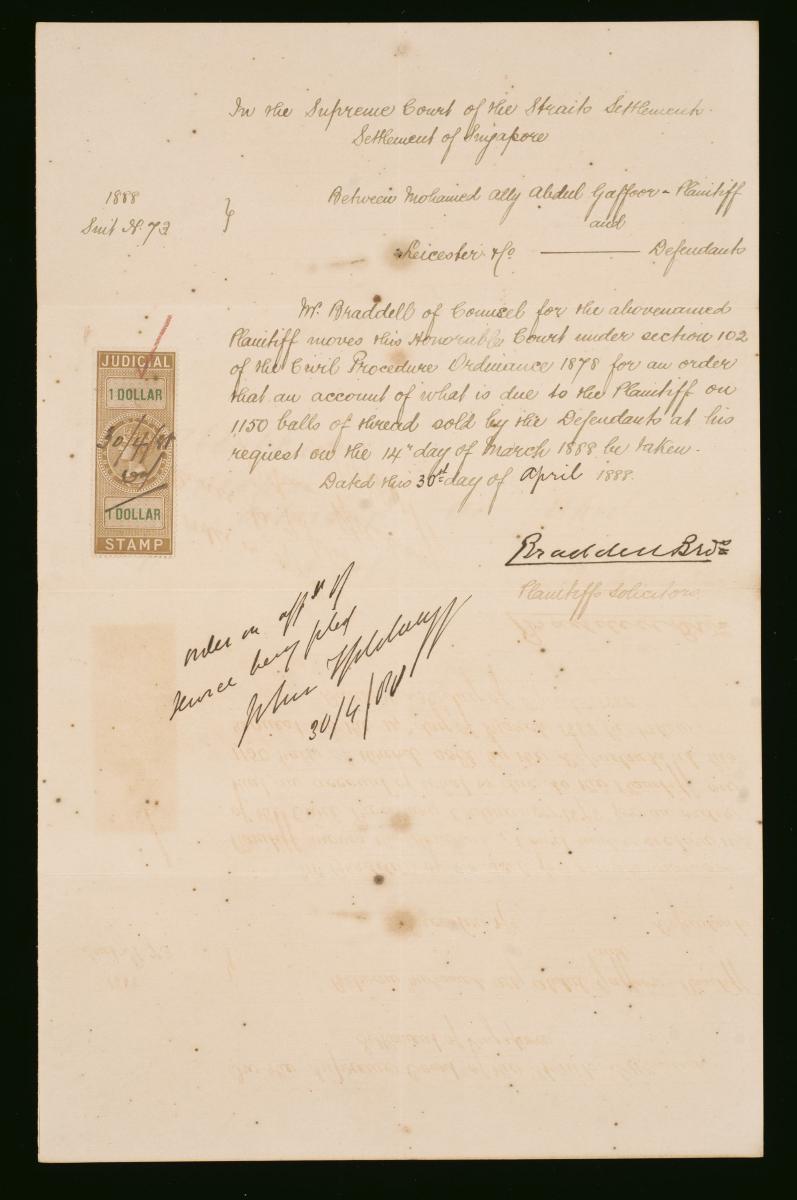 In the Supreme Court of the Straits Settlements.
Settlement of Singapore
1888
Suit No. 73
Between Mohamed Ally Abdul Gaffoor - Plaintiff
and
Leicester & Co — Defendants
Mr. Braddell of Counsel for the abovenamed
Plaintiff moves this Honorable Court under section 102
of the Civil Procedure Ordinance 1878 for an order
that an account of what is due to the Plaintiff on
1150 balls of thread sold by the Defendants at his
request on the 14th day of March 1888 be taken.
Dated this 30th day of April 1888.
JUDICIAL
1 DOLLAR
30/4/88
1 DOLLAR
STAMP
Braddell Bros
Plaintiffs Solicitors
order on afft of
service being filed
John
30/4/88